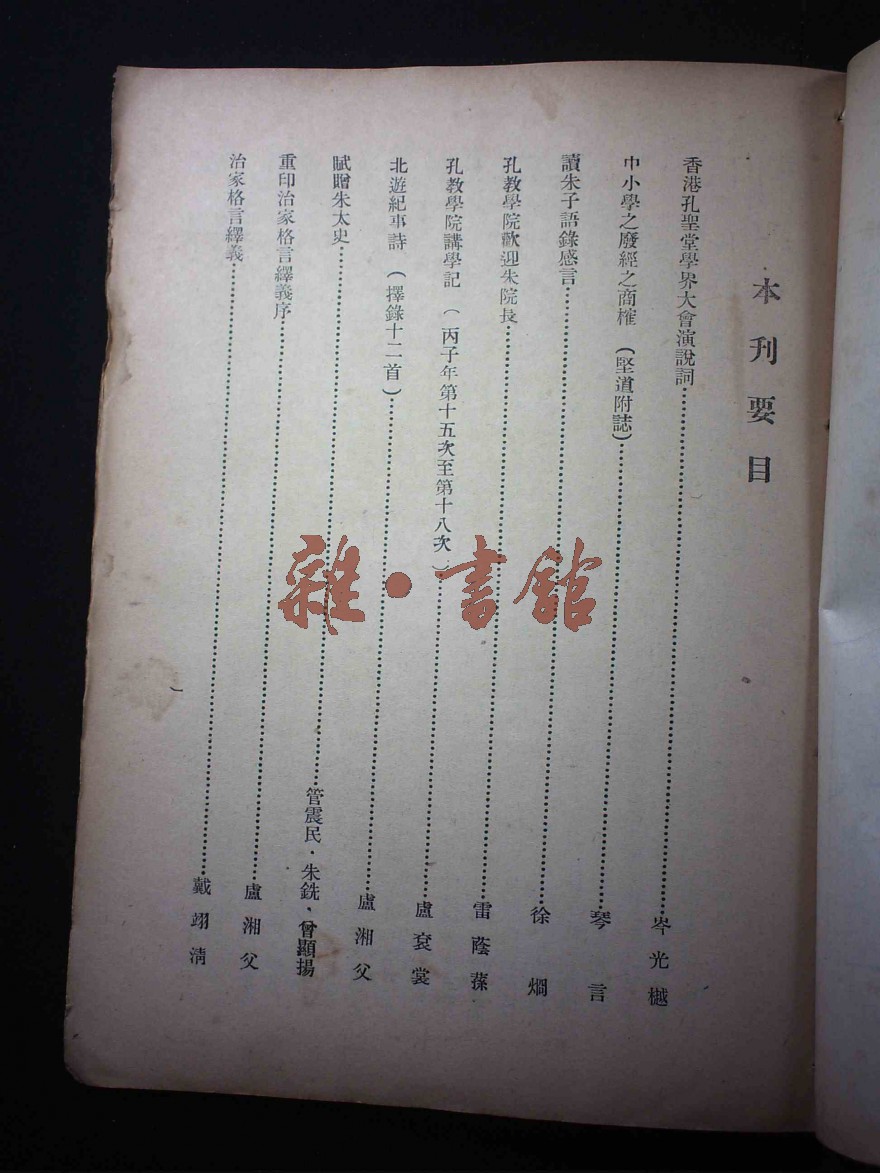 本刊要目
香港孔聖堂學界大會演說詞⋯⋯⋯⋯岑光樾
中小學之廢經之商榷（堅道附誌）⋯⋯⋯⋯琴言
讀朱子語錄感言⋯⋯⋯⋯徐燗
孔教學院歡迎朱院長⋯⋯⋯⋯雷蔭蓀
孔教學院講學記（丙子年第十五次至第十八次）⋯⋯⋯⋯盧袞裳
北遊紀事詩（擇錄十二首）⋯⋯⋯⋯盧湘父
賦贈朱太史⋯⋯⋯⋯管震民・朱銑・曾顯揚
重印治家格言繹義序⋯⋯⋯⋯盧湘父
治家格言繹義⋯⋯⋯⋯戴翊淸
雜・書館